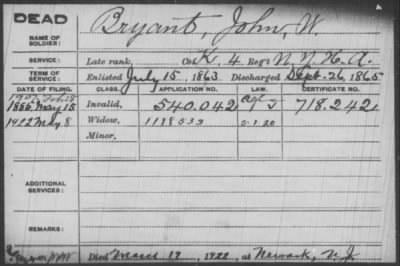 DEAD
NAME OF SOLDIER: Bryant, John, W.
SERVICE: Late rank, Co. K, 4 Reg't N.Y.H.A.
TERM OF SERVICE: Enlisted July 15, 1863 Discharged Sept. 26, 1865
DATE OF FILING. CLASS. APPLICATION NO. LAW. CERTIFICATE NO.
1907 Feb. 28
1885 May 15 Invalid, 540.042 718.242
1922 May 8 Widow, 1188533 5-1-20
Minor,
ADDITIONAL SERVICES:
REMARKS:
Died March 19, 1922, at Newark, N.J.